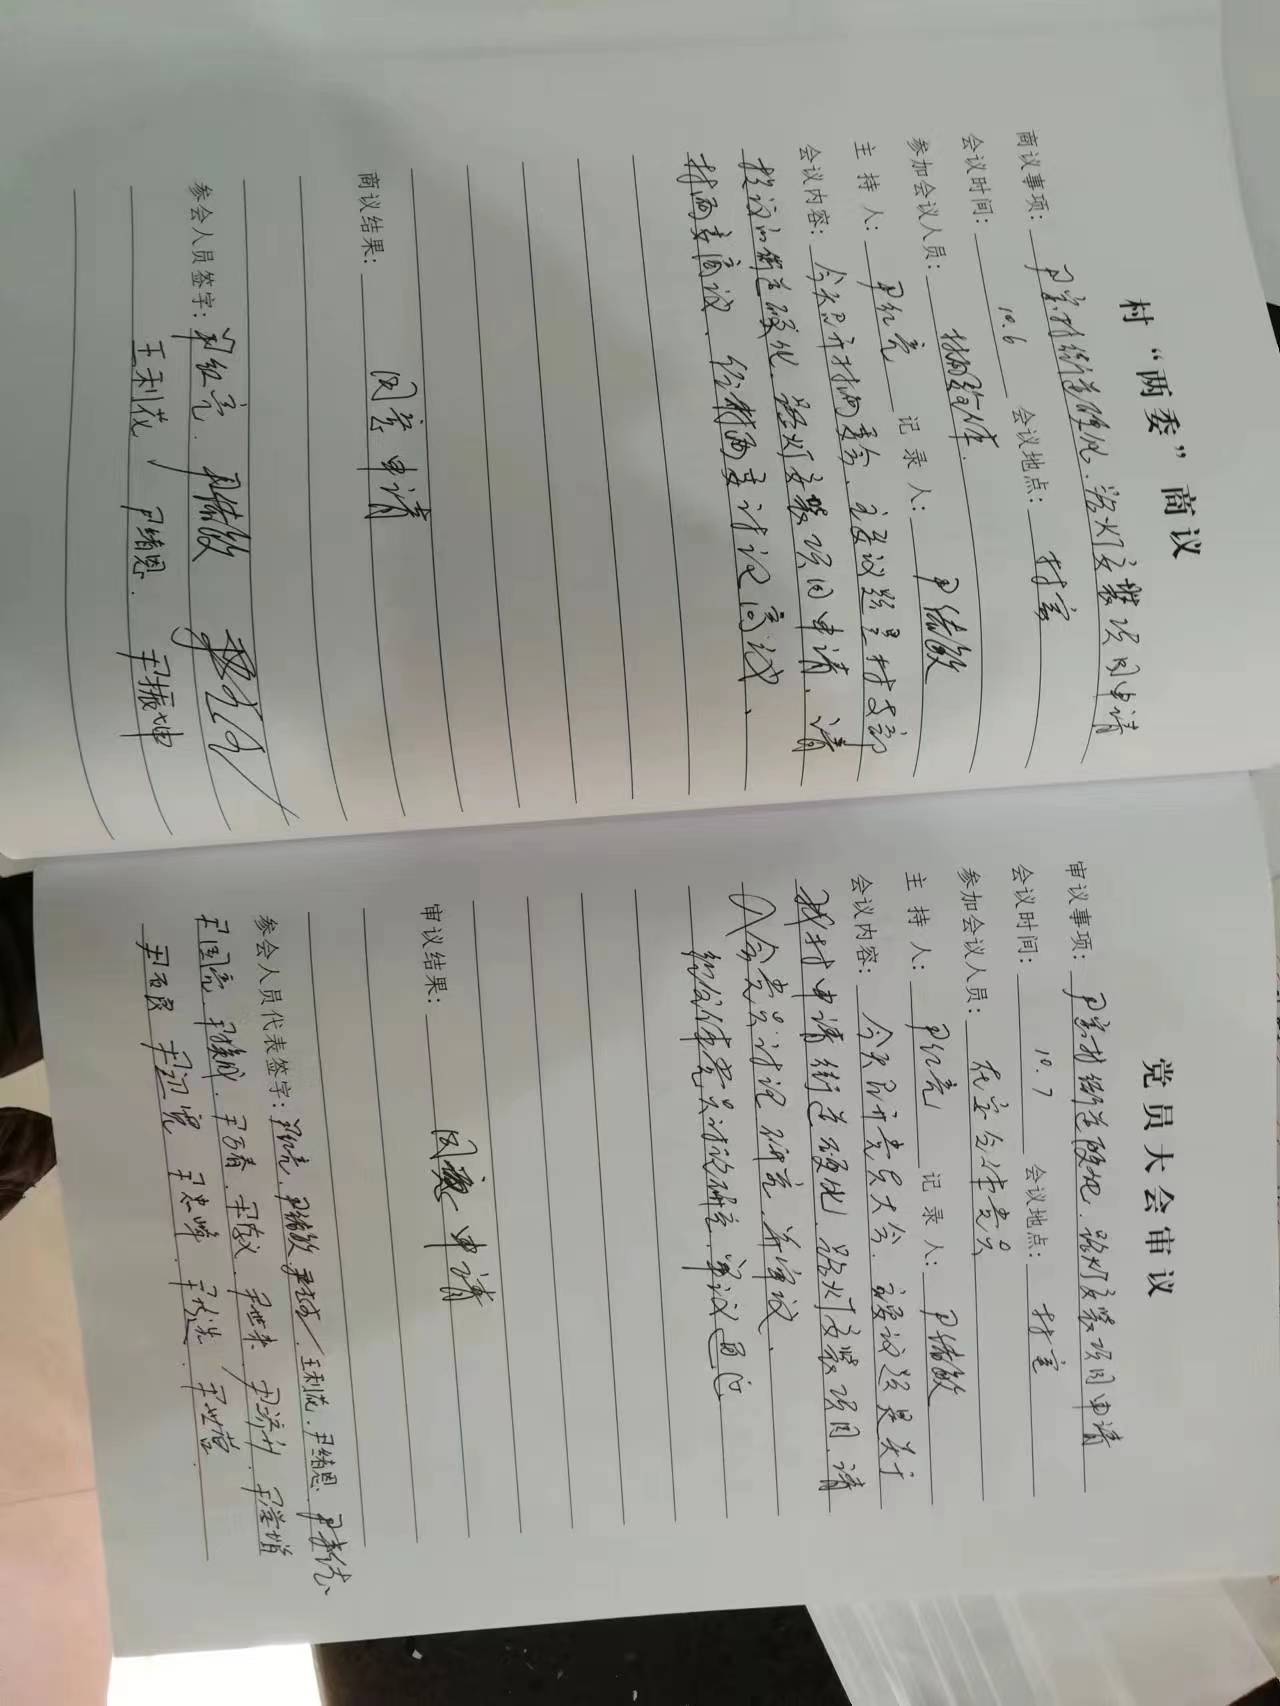 村“两委”商议
商议事项：尹家村街道硬化、路灯安装项目申请
会议时间：10.6 会议地点：村室
参加会议人员：村两委全体
主持人：尹红亮 记录人：尹绪敏
会议内容：今天召开村两委会、主要议题是村支部
提议的街道硬化、路灯安装项目申请、请
村两委商议、经村两委讨论商议、
商议结果：同意申请
参会人员签字：尹红亮、尹绪敏
王利花 尹绪恩 尹振坤
党员大会审议
审议事项：尹家村街道硬化、路灯安装项目申请
会议时间：10.7 会议地点：村室
参加会议人员：在家全体党员
主持人：尹红亮 记录人：尹绪敏
会议内容：今天召开党员大会、主要议题是关于
我村申请街道硬化、路灯安装项目、请
全体党员讨论研究、并审议、
经全体党员讨论研究、审议通过
审议结果：同意申请
参会人员代表签字：尹红亮、尹绪敏 王利花、尹绪恩
尹国亮 尹万春 尹世来 尹学增
尹忠峰 尹世营